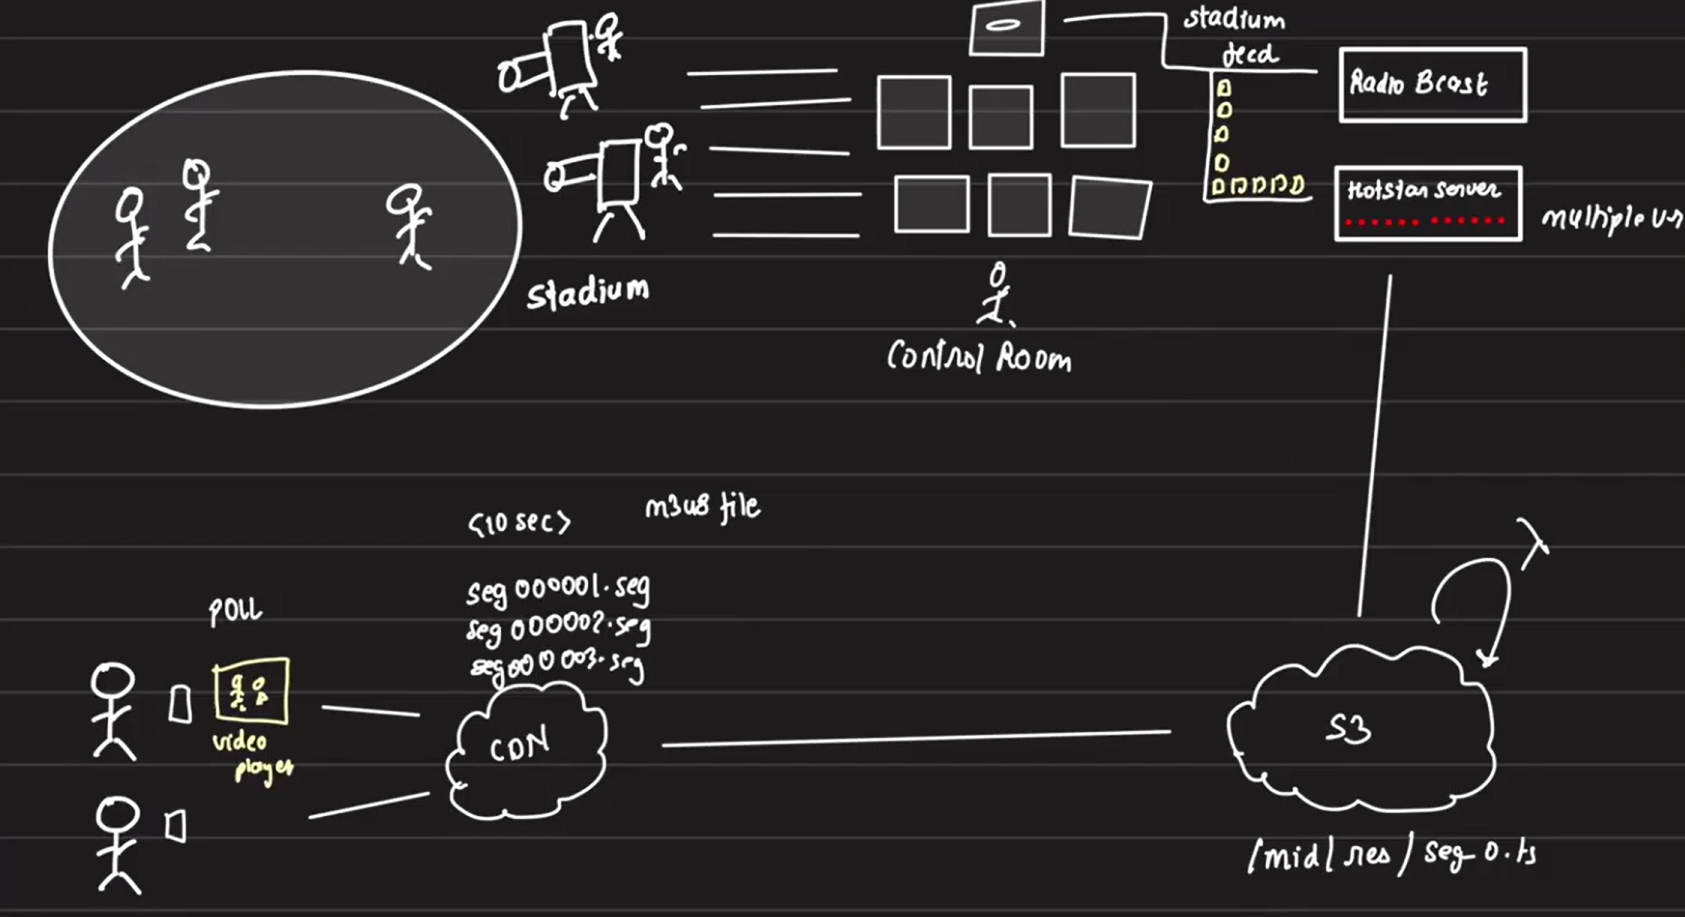 stadium
feed
Radio Bcast
Hotstar server
multiple us
stadium
Control Room
<10 sec>
m3u8 file
POLL
seg 000001.seg
seg 000002.seg
seg 000003.seg
video
player
CDN
S3
λ
/mid/res/seg-0.ts